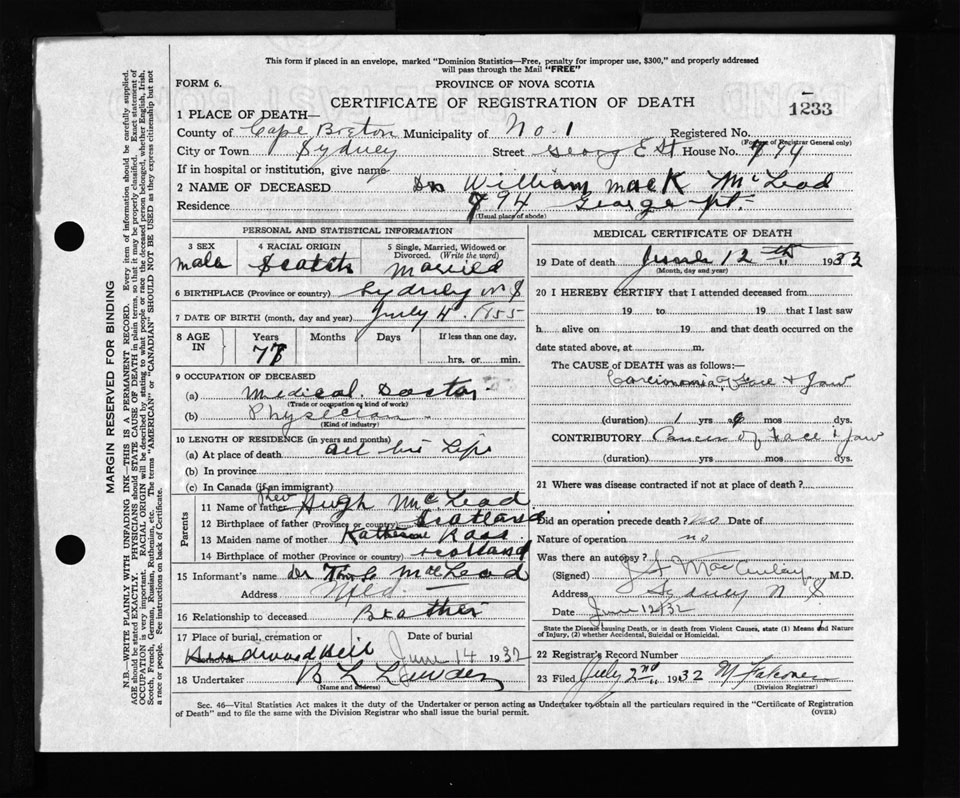 This form if placed in an envelope, marked "Dominion Statistics—Free, penalty for improper use, $300," and properly addressed
will pass through the Mail "FREE"
FORM 6.
PROVINCE OF NOVA SCOTIA
CERTIFICATE OF REGISTRATION OF DEATH
1233
1 PLACE OF DEATH—
County of Cape Breton Municipality of No. 1 Registered No.
(For use of Registrar General only)
City or Town Sydney Street George E St House No. 794
If in hospital or institution, give name
2 NAME OF DECEASED Dr William Mack McLead
Residence 794 George St.
(Usual place of abode)
PERSONAL AND STATISTICAL INFORMATION
3 SEX Male
4 RACIAL ORIGIN Scotch
5 Single, Married, Widowed or Divorced. (Write the word) Married
6 BIRTHPLACE (Province or country) Sydney N S
7 DATE OF BIRTH (month, day and year) July 4. 1855
8 AGE IN Years 77 Months Days If less than one day, hrs. or min.
9 OCCUPATION OF DECEASED
(a) Medical Doctor
(Trade or occupation or kind of work)
(b) Physician
(Kind of industry)
10 LENGTH OF RESIDENCE (in years and months)
(a) At place of death all his Life
(b) In province
(c) In Canada (if an immigrant)
Parents
11 Name of father Rev Hugh McLead
12 Birthplace of father (Province or country) Scotland
13 Maiden name of mother Katherine Ross
14 Birthplace of mother (Province or country) Scotland
15 Informant's name Dr McLead
Address
16 Relationship to deceased Brother
17 Place of burial, cremation or removal Hardwood hill
Date of burial June 14 1932
18 Undertaker B L
(Name and address)
MEDICAL CERTIFICATE OF DEATH
19 Date of death June 12th 1932
(Month, day and year)
20 I HEREBY CERTIFY that I attended deceased from
19 to 19 that I last saw
h alive on 19 and that death occurred on the
date stated above, at m.
The CAUSE OF DEATH was as follows:—
Carcinomia of Face & Jaw
(duration) 1 yrs mos dys.
CONTRIBUTORY Cancer of Face & Jaw
(duration) yrs mos dys.
21 Where was disease contracted if not at place of death?
Did an operation precede death? no Date of
Nature of operation no
Was there an autopsy?
(Signed) M.D.
Address Sydney N S
Date June 12/32
State the Disease causing Death, or in death from Violent Causes, state (1) Means and Nature
of Injury, (2) whether Accidental, Suicidal or Homicidal.
22 Registrar's Record Number
23 Filed July 2nd 1932 M Falconer
(Division Registrar)
Sec. 46—Vital Statistics Act makes it the duty of the Undertaker or person acting as Undertaker to obtain all the particulars required in the "Certificate of Registration
of Death" and to file the same with the Division Registrar who shall issue the burial permit.
(OVER)
MARGIN RESERVED FOR BINDING
N.B.—WRITE PLAINLY WITH UNFADING INK—THIS IS A PERMANENT RECORD. Every item of information should be carefully supplied.
AGE should be stated EXACTLY. PHYSICIANS should STATE CAUSE OF DEATH in plain terms, so that it may be properly classified. Exact statement of
OCCUPATION is very important. RACIAL ORIGIN will be described by stating to what people or race the deceased person belonged, whether English, Irish,
Scotch, French, German, Russian, Ruthenian, etc. The terms "AMERICAN" or "CANADIAN" SHOULD NOT BE USED as they express citizenship but not
a race or people. See instructions on back of Certificate.